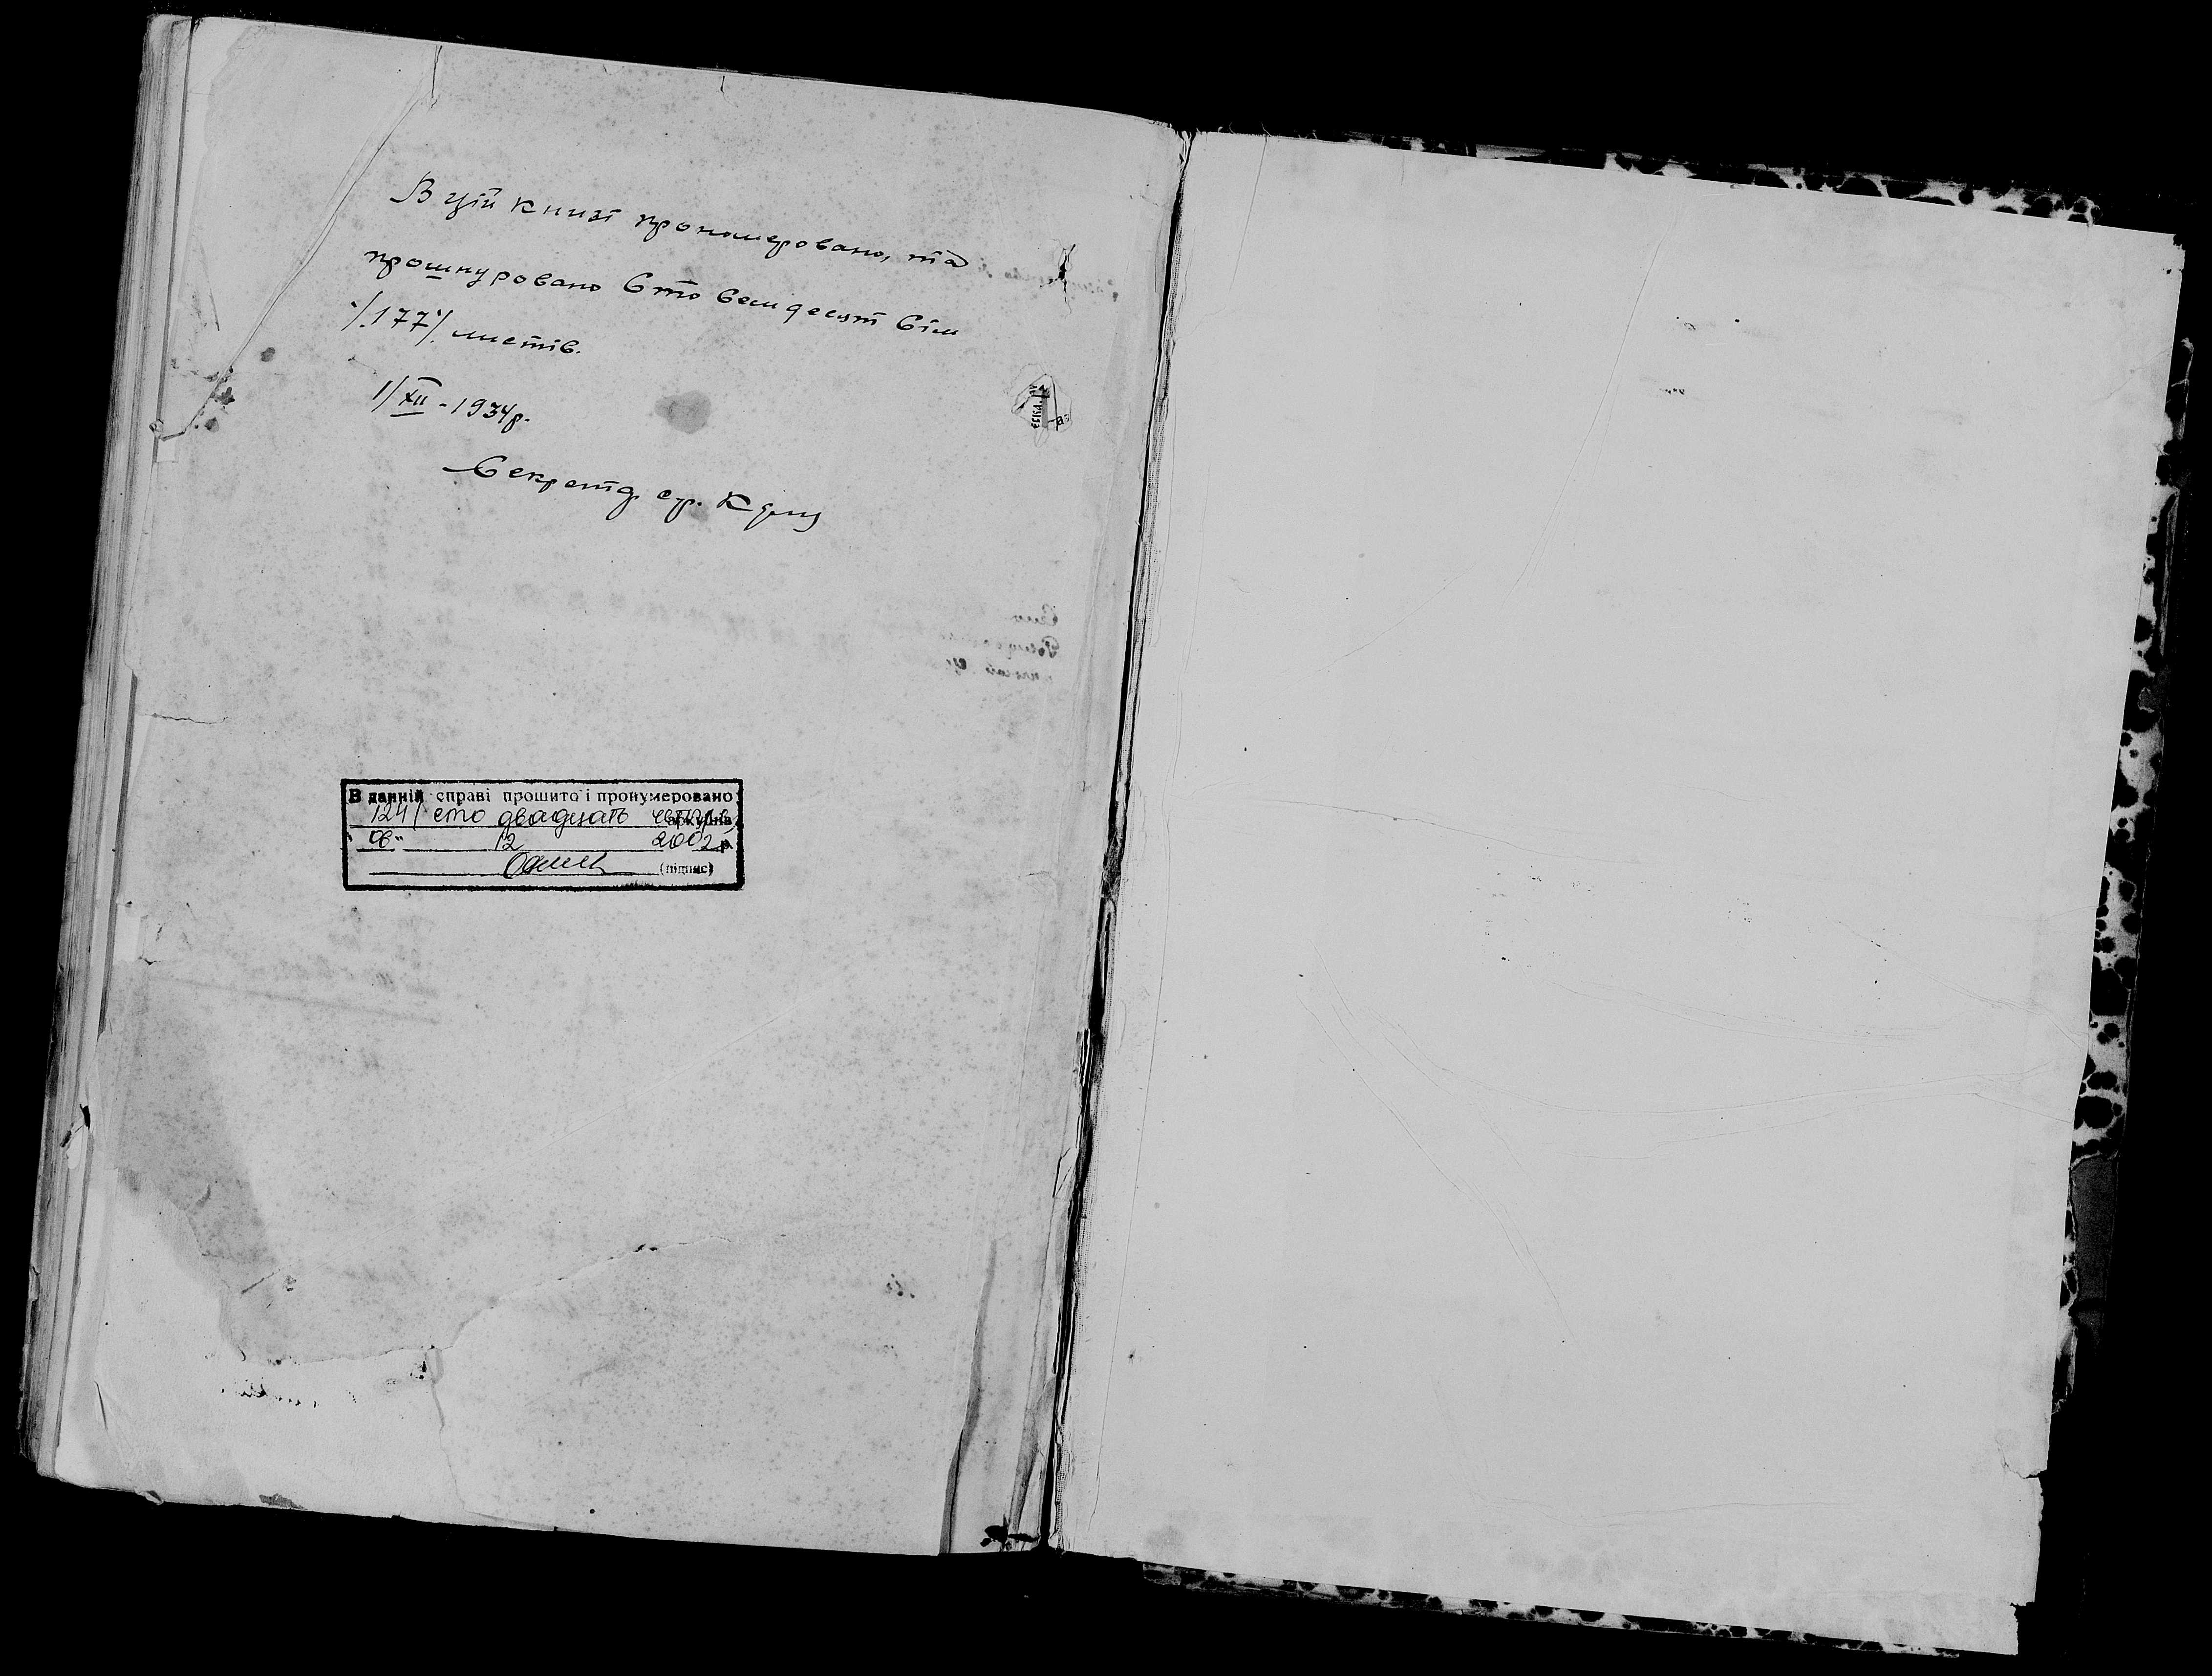 В цій книзі прономеровано, та
прошнуровано Сто Семдесят Сім
/.177/. листів.
1/XII - 1934р.
Секретар с/р.
В данній справі прошито і пронумеровано
124/ сто двадцать чотири/ аркушів
"06" 12 2002 р.
(підпис)